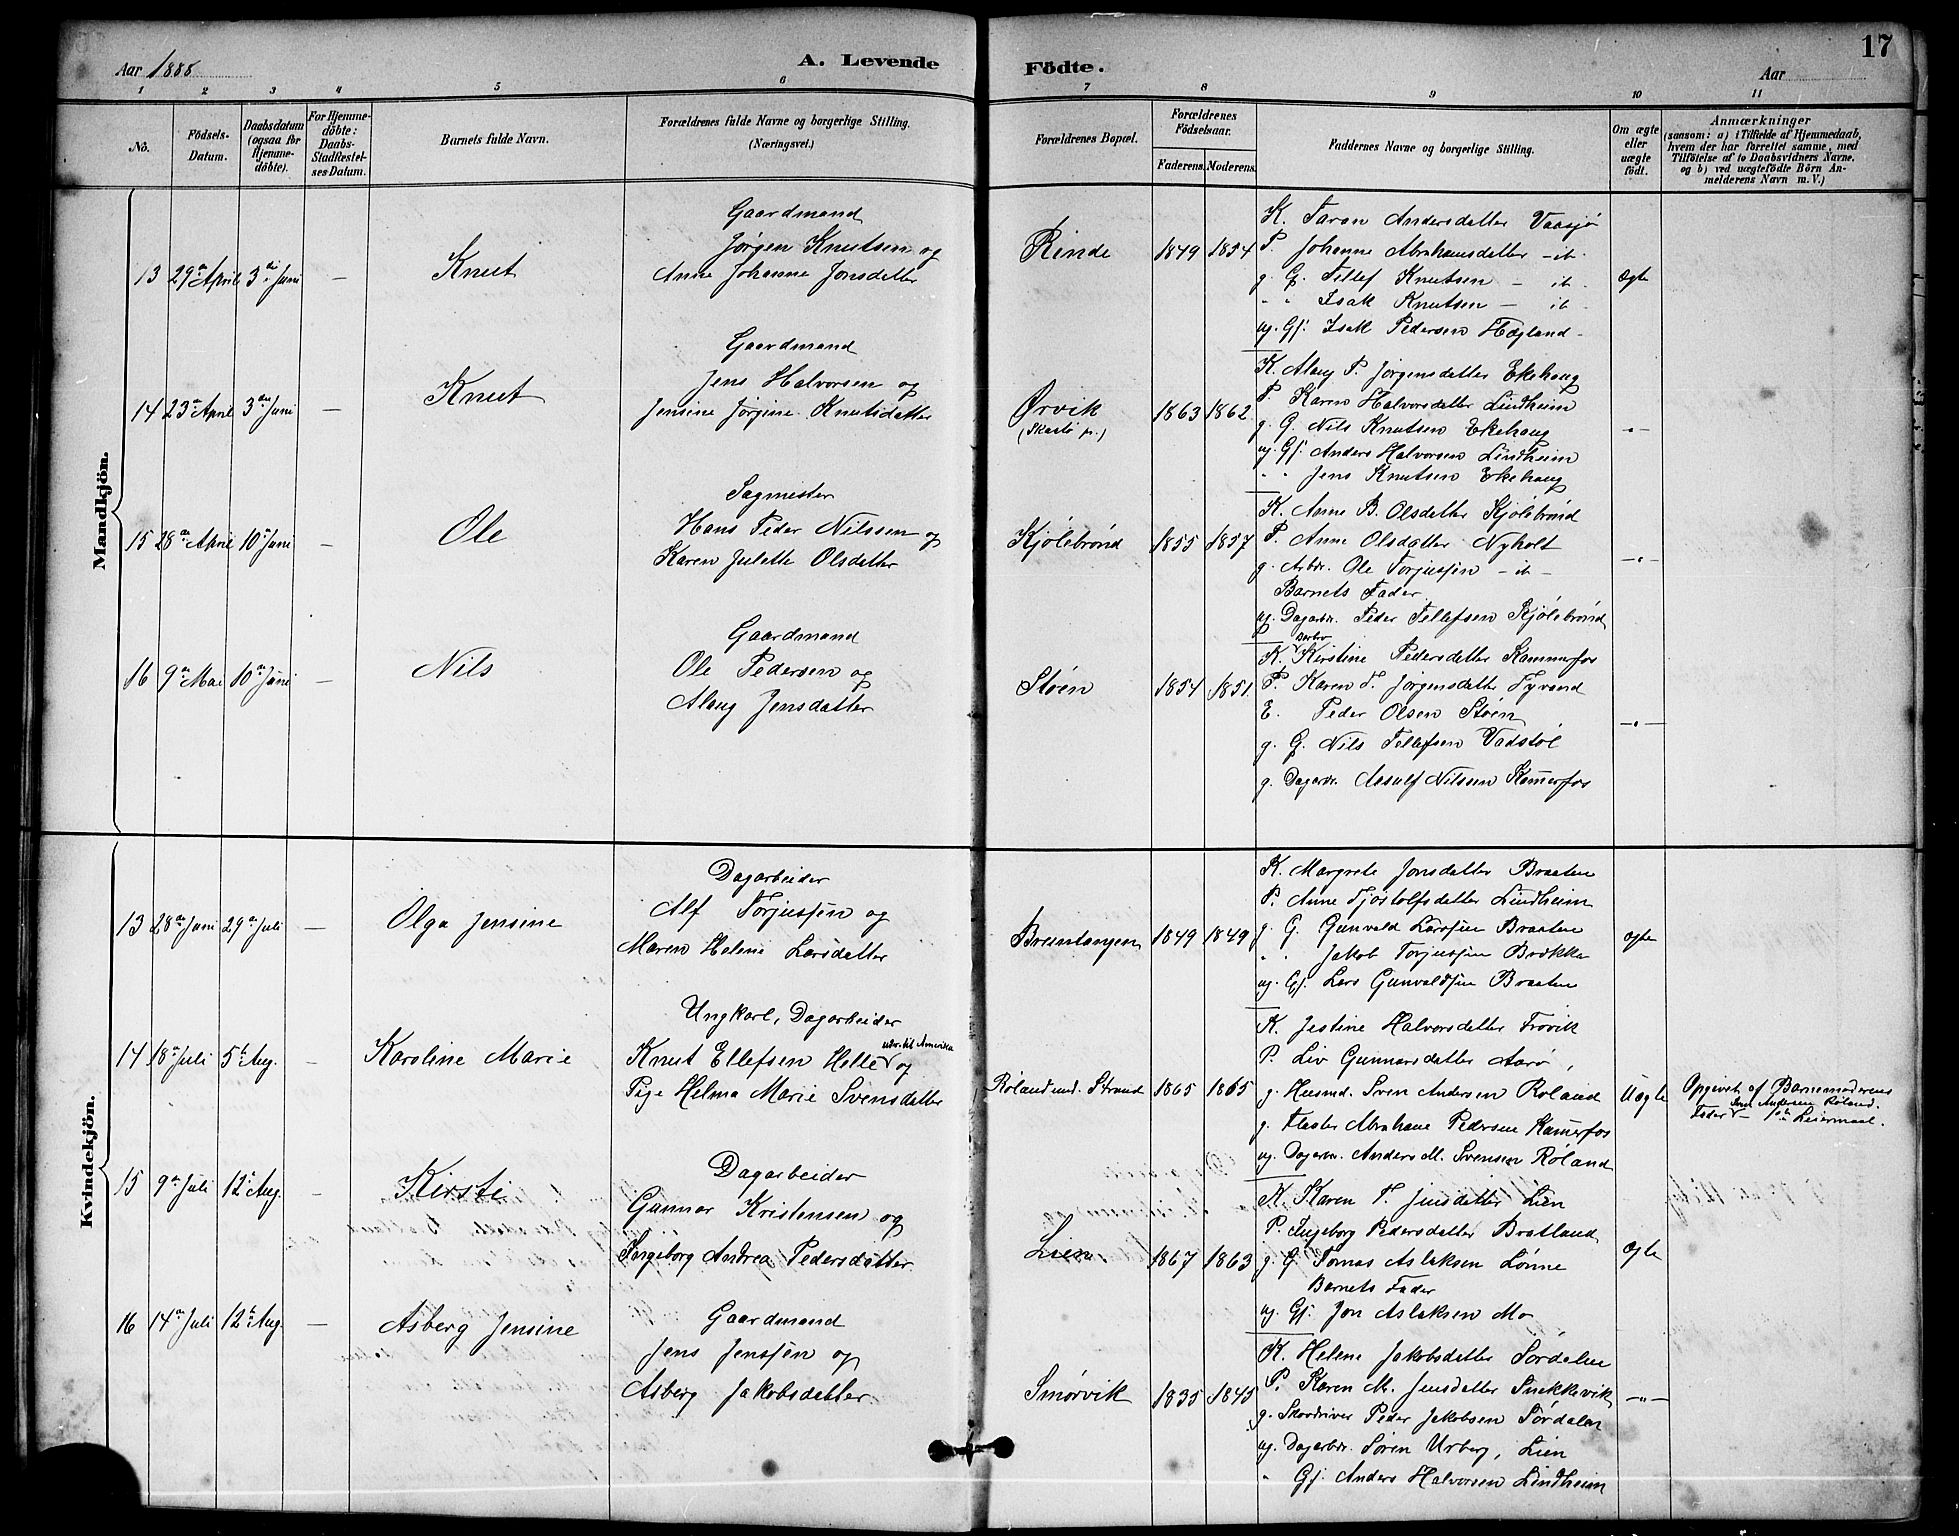 Aar 1888.
A. Levende
Födte.
Aar
17
1 2 3 4 5 6 7 8 9 10 11
No.
Födsels-Datum.
Daabsdatum (ogsaa for Hjemme-döbte).
For Hjemme-döbte: Daabs-Stadfæstel-ses Datum.
Barnets fulde Navn.
Forældrenes fulde Navne og borgerlige Stilling. (Næringsvei.)
Forældrenes Bopæl.
Forældrenes Födselsaar.
Faderens. Moderens.
Faddernes Navne og borgerlige Stilling.
Om ægte eller uægte födt.
Anmærkninger
(saasom: a) i Tilfælde af Hjemmedaab,
hvem der har forrettet samme, med
Tilföielse af to Daabsvidners Navne,
og b) ved uægtefödte Börn An-
melderens Navn m. V.)
Mandkjön.
13 29de April 3die Juni — Knut
Gaardmand
Jørgen Knutsen og
Anne Johanne Jonsdatter
Rinde 1849 1854
K. Taran Andersdatter Vaasjø
P. Johanne Abrahamsdatter - it.
g. G. Tellef Knutsen - it.
" " Isak Knutsen - it.
ug. Gf. Isak Pedersen Hegland -
Ægte
14 23de April 3die Juni — Knut
Gaardmand
Jens Halvorsen og
Jensine Jørgine Knutsdatter
Ørvik
(Skaatø pr.)
1863 1862
K. Alaug P. Jørgensdatter Ekehaug
P. Karen Halvorsdatter Lindheim
g. G. Nils Knutsen Ekehaug
ug. Gf. Anders Halvorsen Lindheim
" " Jens Knutsen Ekehaug
— " —
15 28de April 10de Juni — Ole
Sagmester
Hans Peder Nilssen og
Karen Julette Olsdatter
Kjølebrønd 1855 1857
K. Anne B. Olsdatter Kjølebrønd
P. Anne Olsdatter Nyholt
g. Arbdr. Ole Torjussen - it -
Barnets Fader
ug. Dagarbr. Peder Tellefsen Kjølebrønd
— " —
16 9de Mai 10de Juni — Nils
Gaardmand
Ole Pedersen og
Alaug Jensdatter
Støen 1854 1851
K. Kirstine Pedersdatter Kammerfos
P. Karen T. Jørgensdatter Tyvand
E. Peder Olsen Støen
g. G. Nils Tellefsen Vadstøl
g. Dagarbr. Assulf Nilssen Kamerfos
— " —
Kvindekjön.
13 28de Juni 29de Juli — Olga Jensine
Dagarbeider
Alf Torjussen og
Maren Helene Larsdatter
Breintangen 1849 1849
K. Margrete Jonsdatter Braaten
P. Anne Tjostolfsdatter Lindheim
g. G. Gunvald Larssen Braaten
" " Jakob Torjussen Brøkka
ug. Gf. Lars Gunvaldsen Braaten
Ægte
14 18de Juli 5te Aug. — Karoline Marie
Ungkarl, Dagarbeider
Knut Ellefsen Helle udv. til Amerika og
Pige Helma Marie Svensdatter
Røland und. Strand 1865 1865
K. Jestine Halvorsdatter Frøvik
P. Liv Gunnarsdatter Aarø,
g. Husmd. Sven Andersen Røland
g. Flaater Abraham Pedersen Kamerfos
ug. Dagarbr. Anders M. Svensen Røland
Uægte
Opgivet af Barnemoderens
Fader Sven Andersen Røland.
Leiermaal.
15 9de Juli 12te Aug. — Kirsti
Dagarbeider
Gunnar Kristensen og
Ingeborg Andrea Pedersdatter
Lien 1867 1863
K. Karen T. Jensdatter Lien
P. Ingeborg Pedersdatter Bratland
g. G. Tomas Aslaksen Lønne
Barnets Fader
ug. Gf. Jon Aslaksen Mo
Ægte
16 14de Juli 12te Aug. — Asberg Jensine
Gaardmand
Jens Jenssen og
Asberg Jakobsdatter
Smørvik 1835 1845
K. Helene Jakobsdatter Sørdalen
P. Karen M. Jensdatter Snekkevik
g. Skovdriver Peder Jakobsen Sørdalen
ug. Dagarbdr. Søren Urberg, Lien
" Gf. Anders Halvorsen Lindheim
— " —